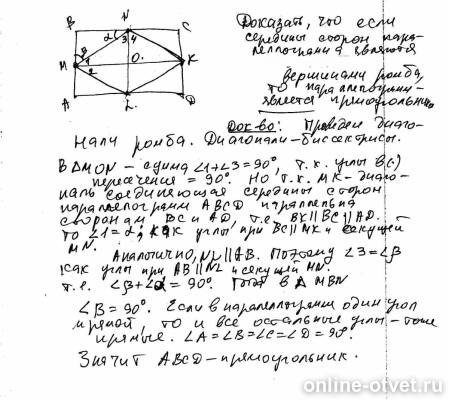 B N C
α 3 4
β
M 1 2 O. K
A L D
Доказать, что если
середины сторон пара-
лелограмма являются
вершинами ромба,
то параллелограмм-
является прямоугольник
Док-во: Проведем диаго-
нали ромба. Диагонали-биссектрисы.
В ΔMON - сумма ∠1+∠3=90°, т.к. углы в(с)
пересечения = 90°. Но, т.к. MK-диаго-
наль соединяющая середины сторон
параллелограмм ABCD параллельна
сторонам BC и AD, т.е. BK∥BC∥AD.
то ∠1=α, как углы при BC∥MK и секущей
MN.
Аналогично, NL∥AB. Поэтому ∠3=∠β
как углы при AB∥NL и секущей MN.
т.е. ∠β+∠α=90°. Тогда в Δ MBN
∠B=90°. Если в параллелограмм один угол
прямой, то и все остальные углы-тоже
прямые. ∠A=∠B=∠C=∠D=90°.
Значит ABCD-прямоугольник.
online-otvet.ru